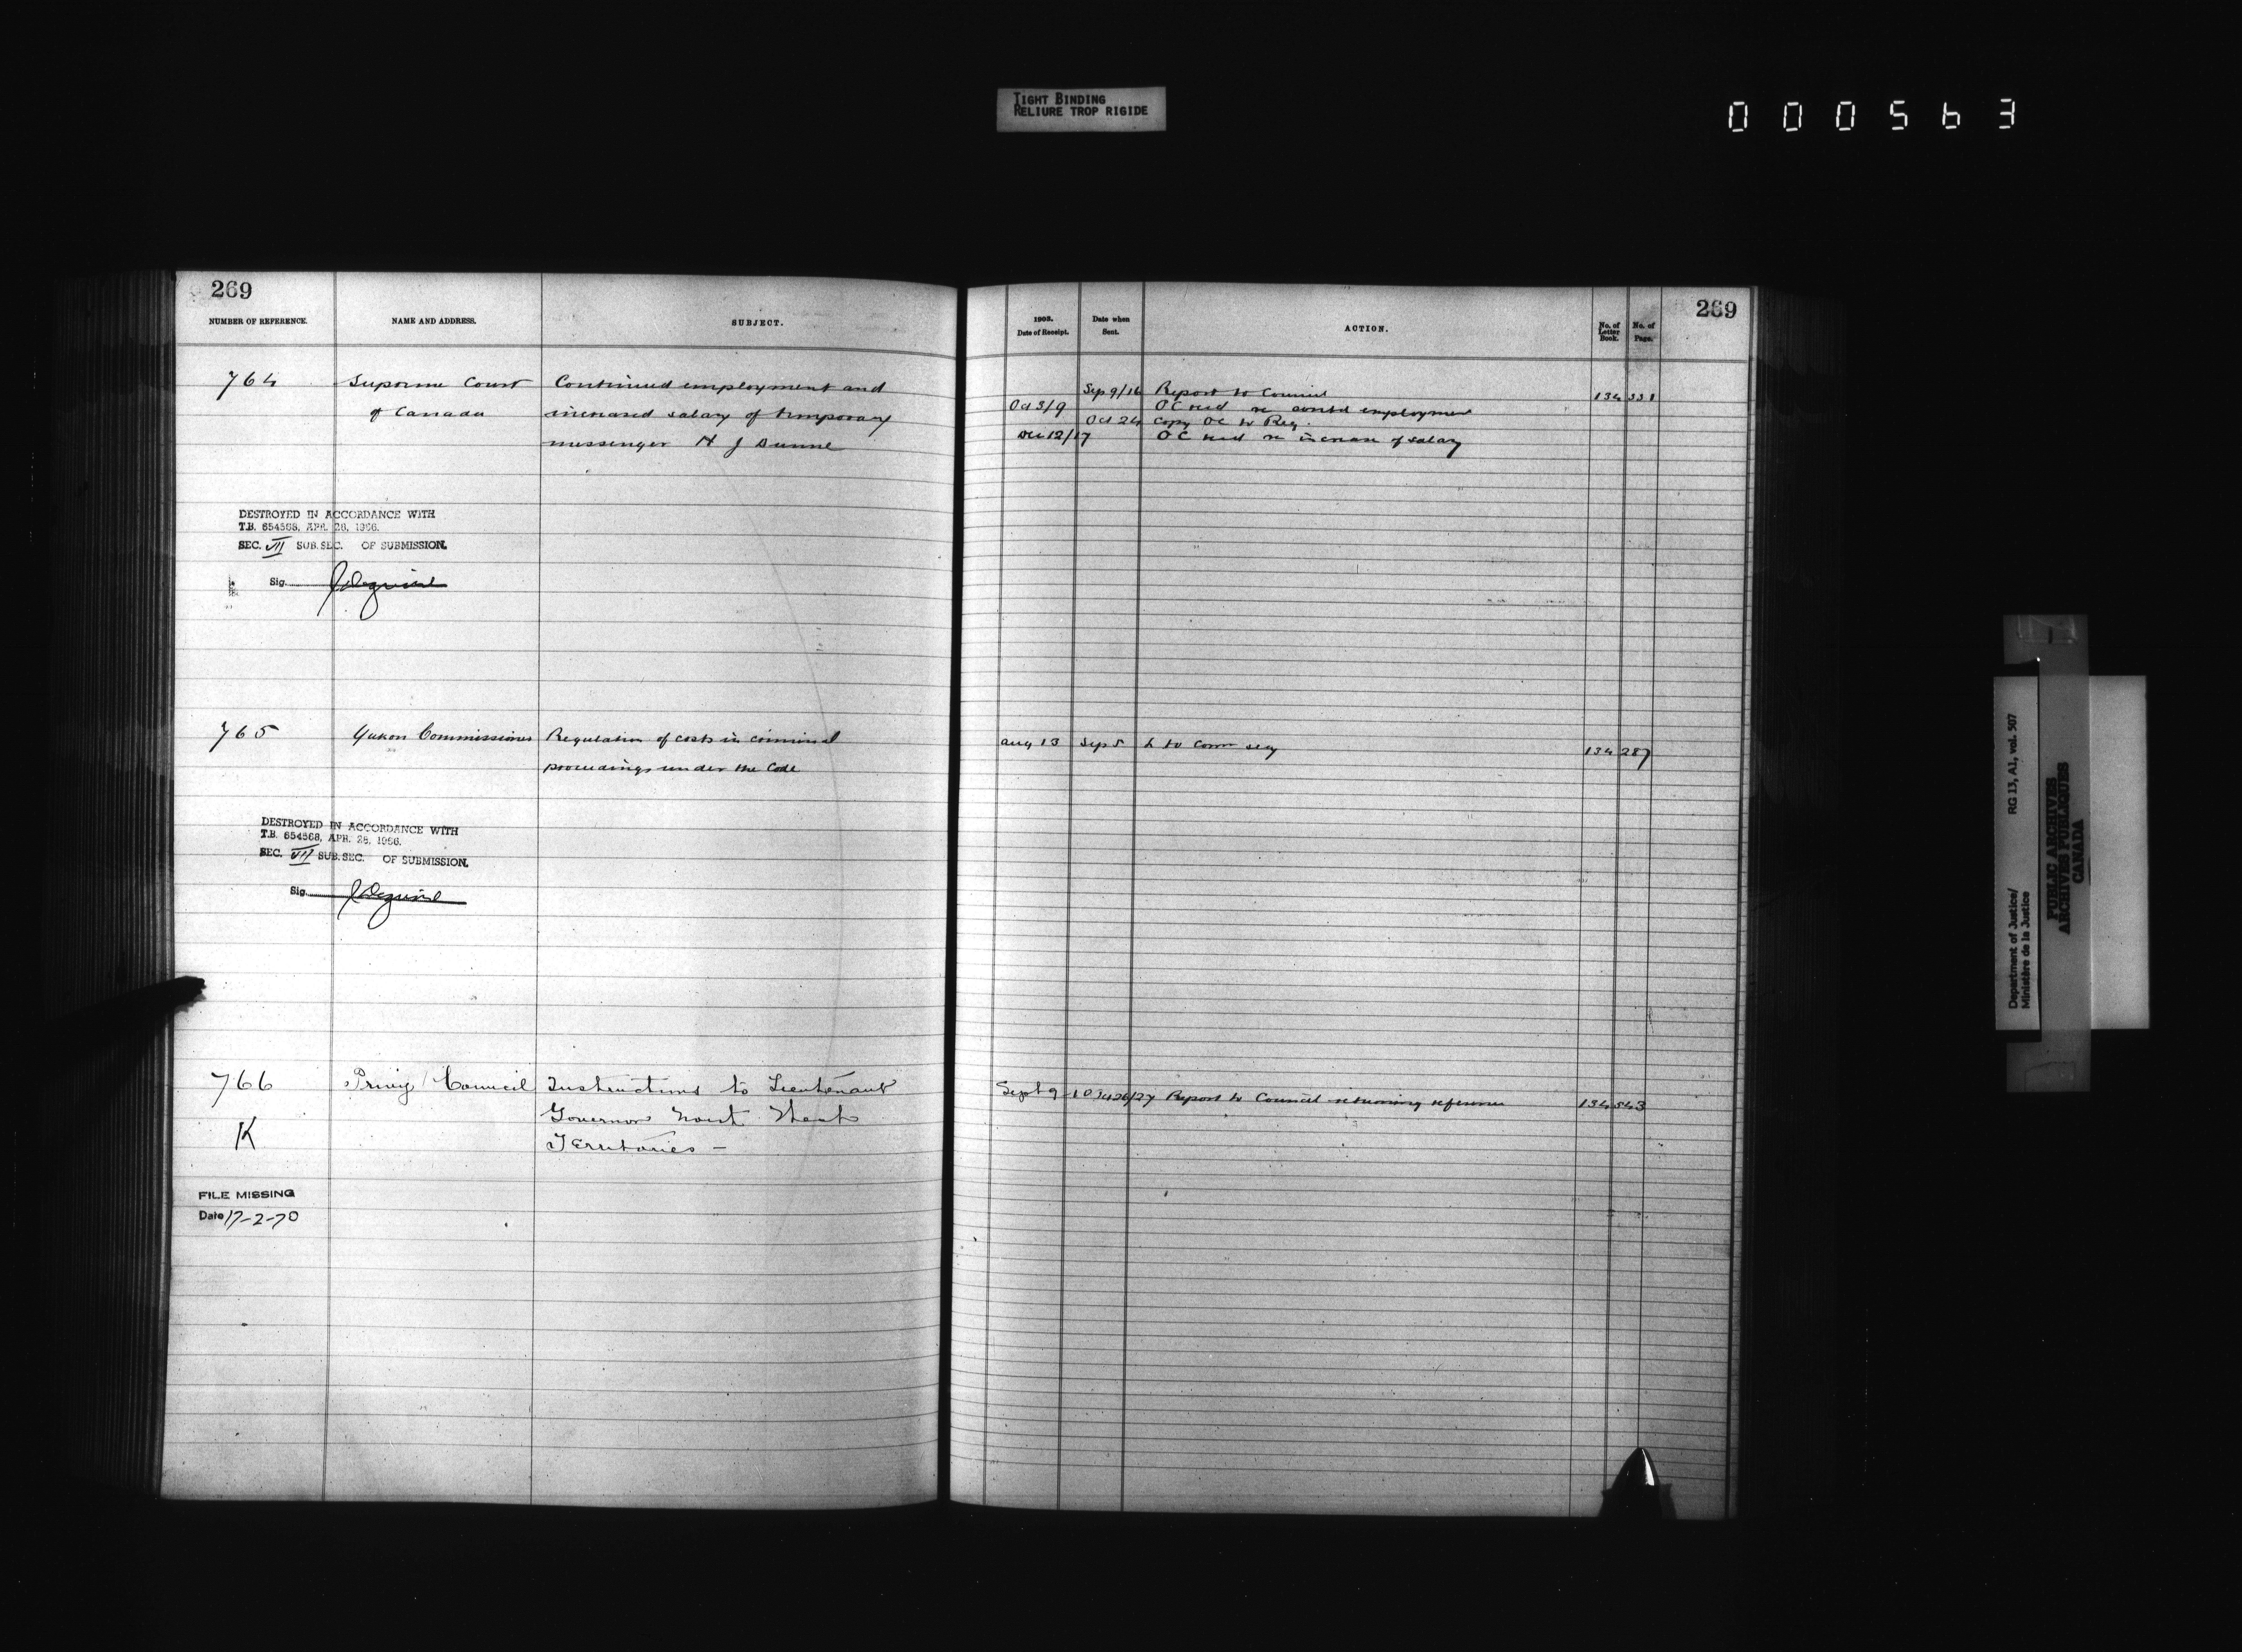 TIGHT BINDING
RELIURE TROP RIGIDE
000563
269
NUMBER OF REFERENCE.
NAME AND ADDRESS.
SUBJECT.
764
Supreme Court
of Canada
Continued employment and
increased salary of temporary
messenger H J Dunne
DESTROYED IN ACCORDANCE WITH
T.B. 654568, APR. 28, 1966.
SEC. VII SUB.SEC. OF SUBMISSION.
Sig.
765
Yukon Commissioner
Regulation of costs in criminal
proceedings under the Code
DESTROYED IN ACCORDANCE WITH
T.B. 654568, APR. 28, 1966.
SEC. VII SUB.SEC. OF SUBMISSION.
Sig.
766
Privy Council
Instructions to Lieutenant
Governor North West
Territories -
K
FILE MISSING
Date 17-2-70
269
1903.
Date of Receipt.
Date when
Sent.
ACTION.
No. of
Letter
Book.
No. of
Page.
Sep 9/16 Report to Council 134 331
Oct 3/9 OC recd re contd employment
Oct 24 Copy OC to Reg.
Dec 12/17 OC recd re increase of salary
Aug 13 Sep 5 L to Comr 134 287
Sept 9 Report to Council returning reference 134 543
Department of Justice/
Ministère de la Justice
RG 13, A1, vol. 507
PUBLIC ARCHIVES
ARCHIVES PUBLIQUES
CANADA